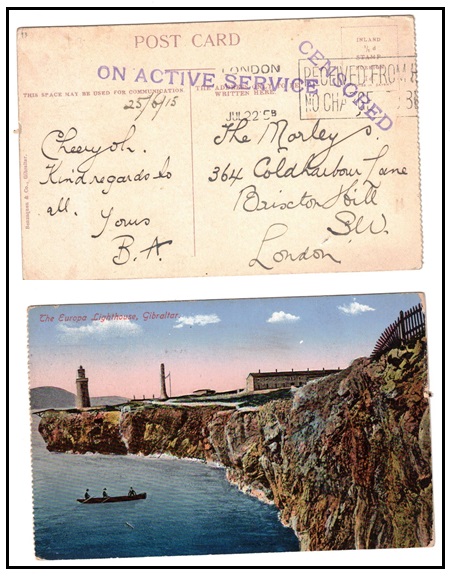 POST CARD
ON ACTIVE SERVICE
CENSORED
INLAND
½d
STAMP
THIS SPACE MAY BE USED FOR COMMUNICATION.
THE ADDRESS ONLY TO BE
WRITTEN HERE.
LONDON
JUL 22
RECEIVED FROM
NO CHA
25/6/15
Cheeryoh.
Kind regards to
all.
Yours
B.A.
The Morleys.
364 Coldharbour Lane
Brixton Hill
S.W.
London
Beanland & Co., Gibraltar.
The Europa Lighthouse, Gibraltar.